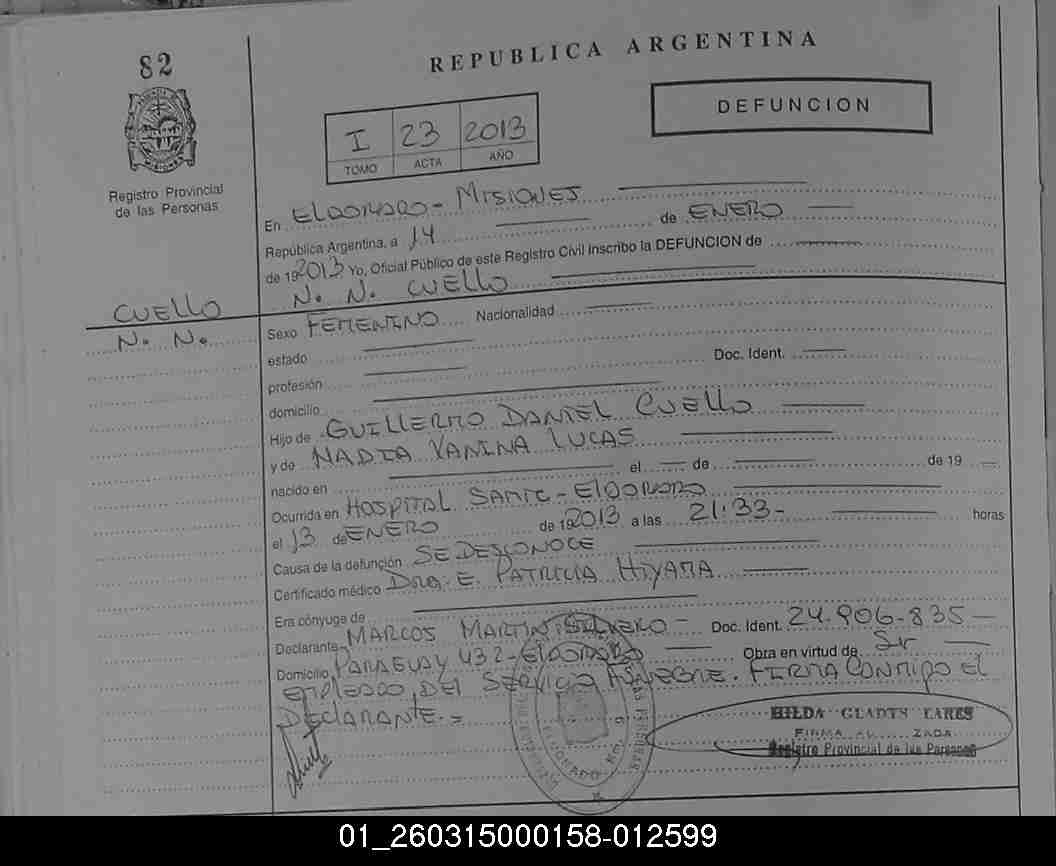 82
REPUBLICA ARGENTINA
DEFUNCION
I 23 2013
TOMO ACTA AÑO
Registro Provincial
de las Personas
En ELDORADO - MISIONES
República Argentina, a 14 de ENERO
de 19 2013 Yo, Oficial Público de este Registro Civil Inscribo la DEFUNCION de
N. N. CUELLO
CUELLO
N. N.
Sexo FEMENINO Nacionalidad
estado
profesión Doc. Ident.
domicilio
Hijo de GUILLERMO DANIEL CUELLO
y de NADIA YANINA LUCAS
nacido en el de de 19
Ocurrida en HOSPITAL SAMIC - ELDORADO
el 13 de ENERO de 19 2013 a las 21:33 - horas
Causa de la defunción SE DESCONOCE
Certificado médico DRA. E. PATRICIA HIYAMA
Era cónyuge de
Declarante MARCOS MARTIN SILVERO - Doc. Ident. 24.906.835
Domicilio PARAGUAY 432 - ELDORADO Obra en virtud de Ser
EMPLEADO DEL SERVICIO FUNEBRE. FIRMA CONMIGO EL
DECLARANTE. =
HILDA GLADYS LARES
FIRMA AU ZADA
Registro Provincial de las Personas
01_260315000158-012599